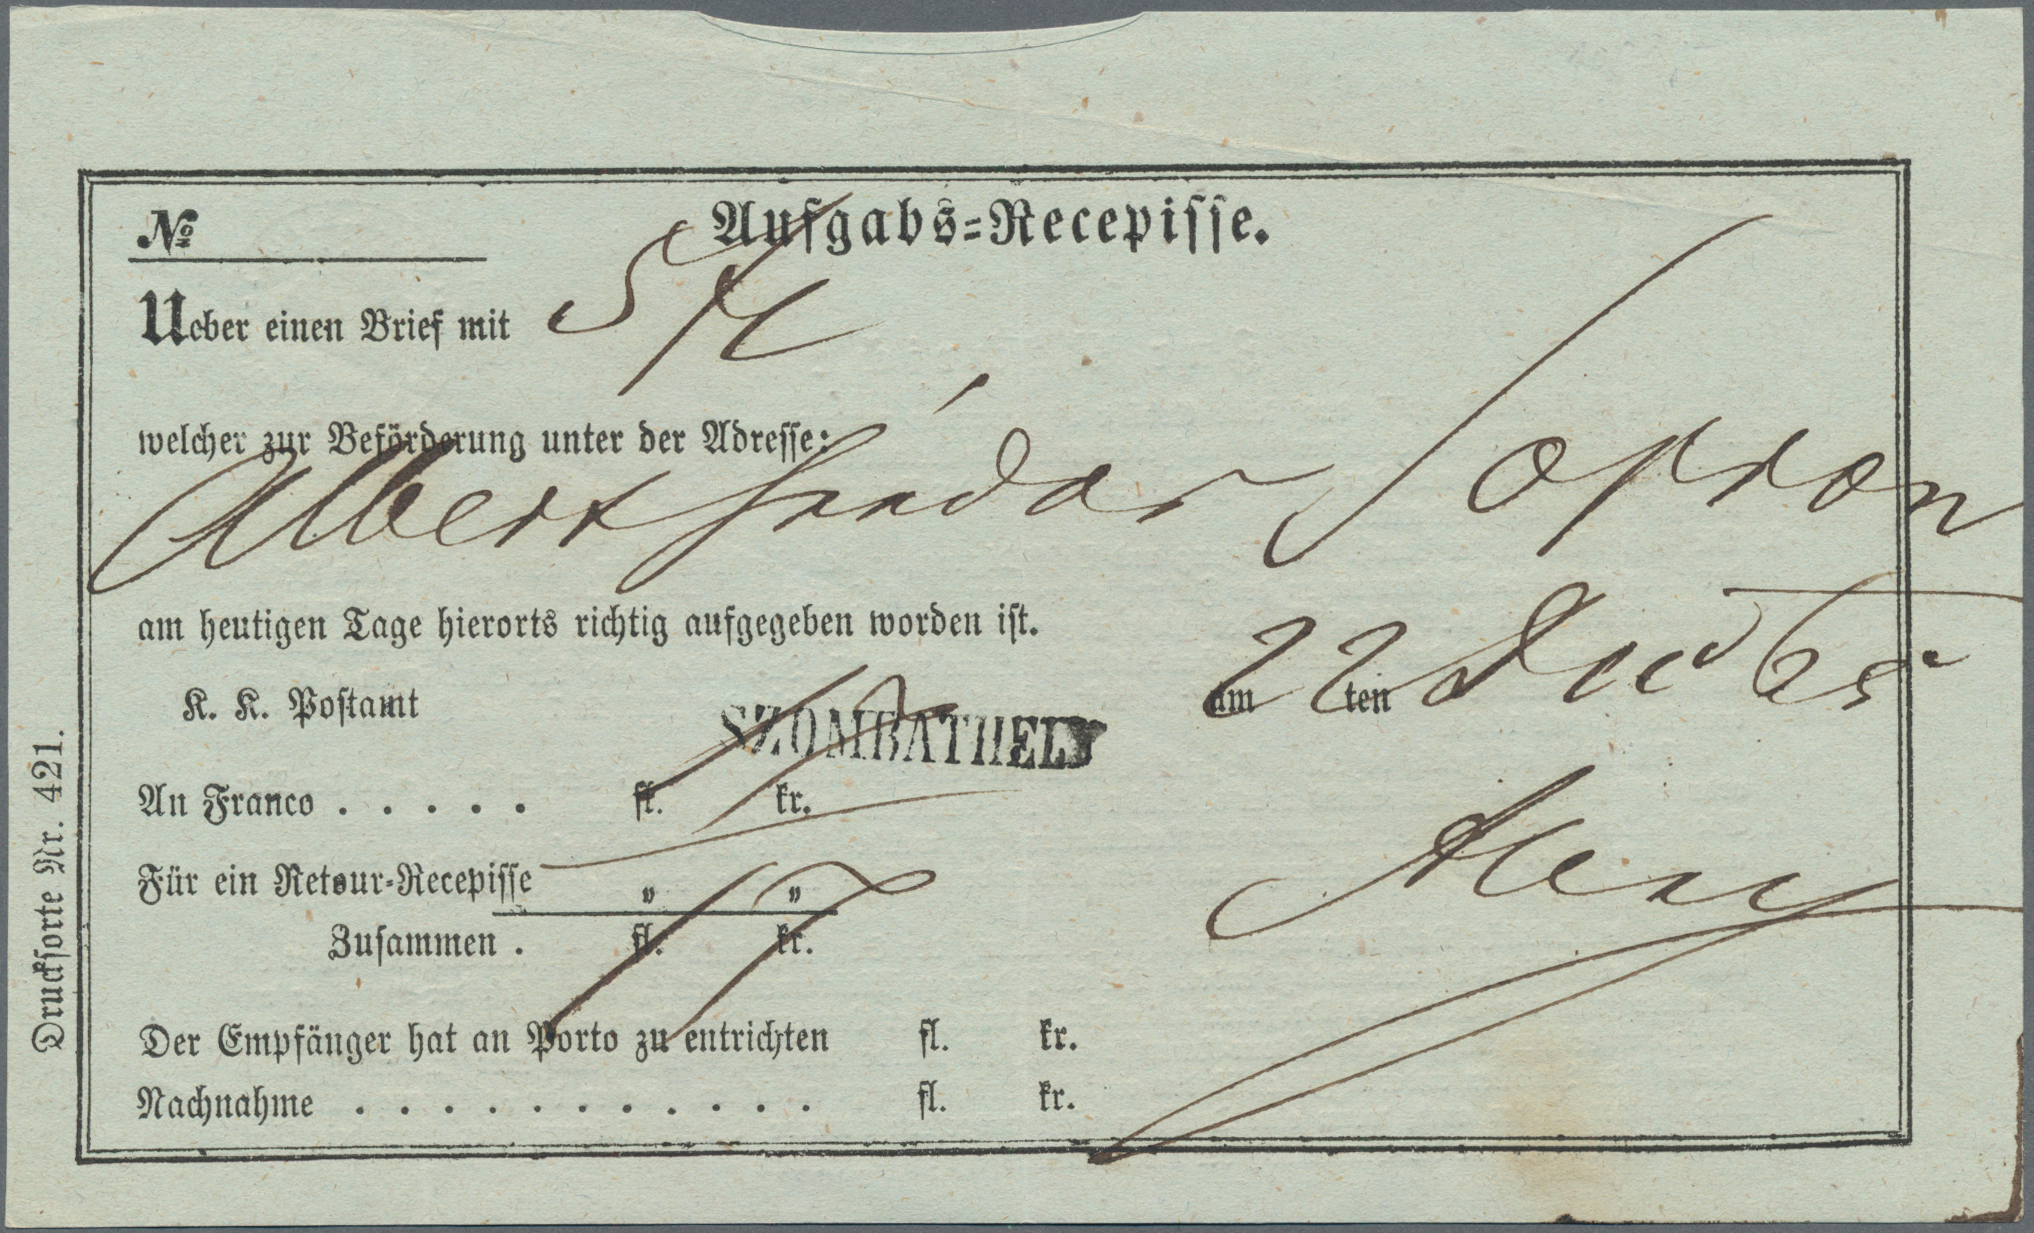 Aufgabs-Recepisse.
№
Ueber einen Brief mit
welcher zur Beförderung unter der Adresse:
Albert Sándor Sopron
am heutigen Tage hierorts richtig aufgegeben worden ist.
K. K. Postamt SZOMBATHELY am 22 ten
An Franco . . . . . fl. kr.
Für ein Retour-Recepisse " "
Zusammen . fl. kr.
Der Empfänger hat an Porto zu entrichten fl. kr.
Nachnahme . . . . . . . . . . . fl. kr.
Drucksorte Nr. 421.